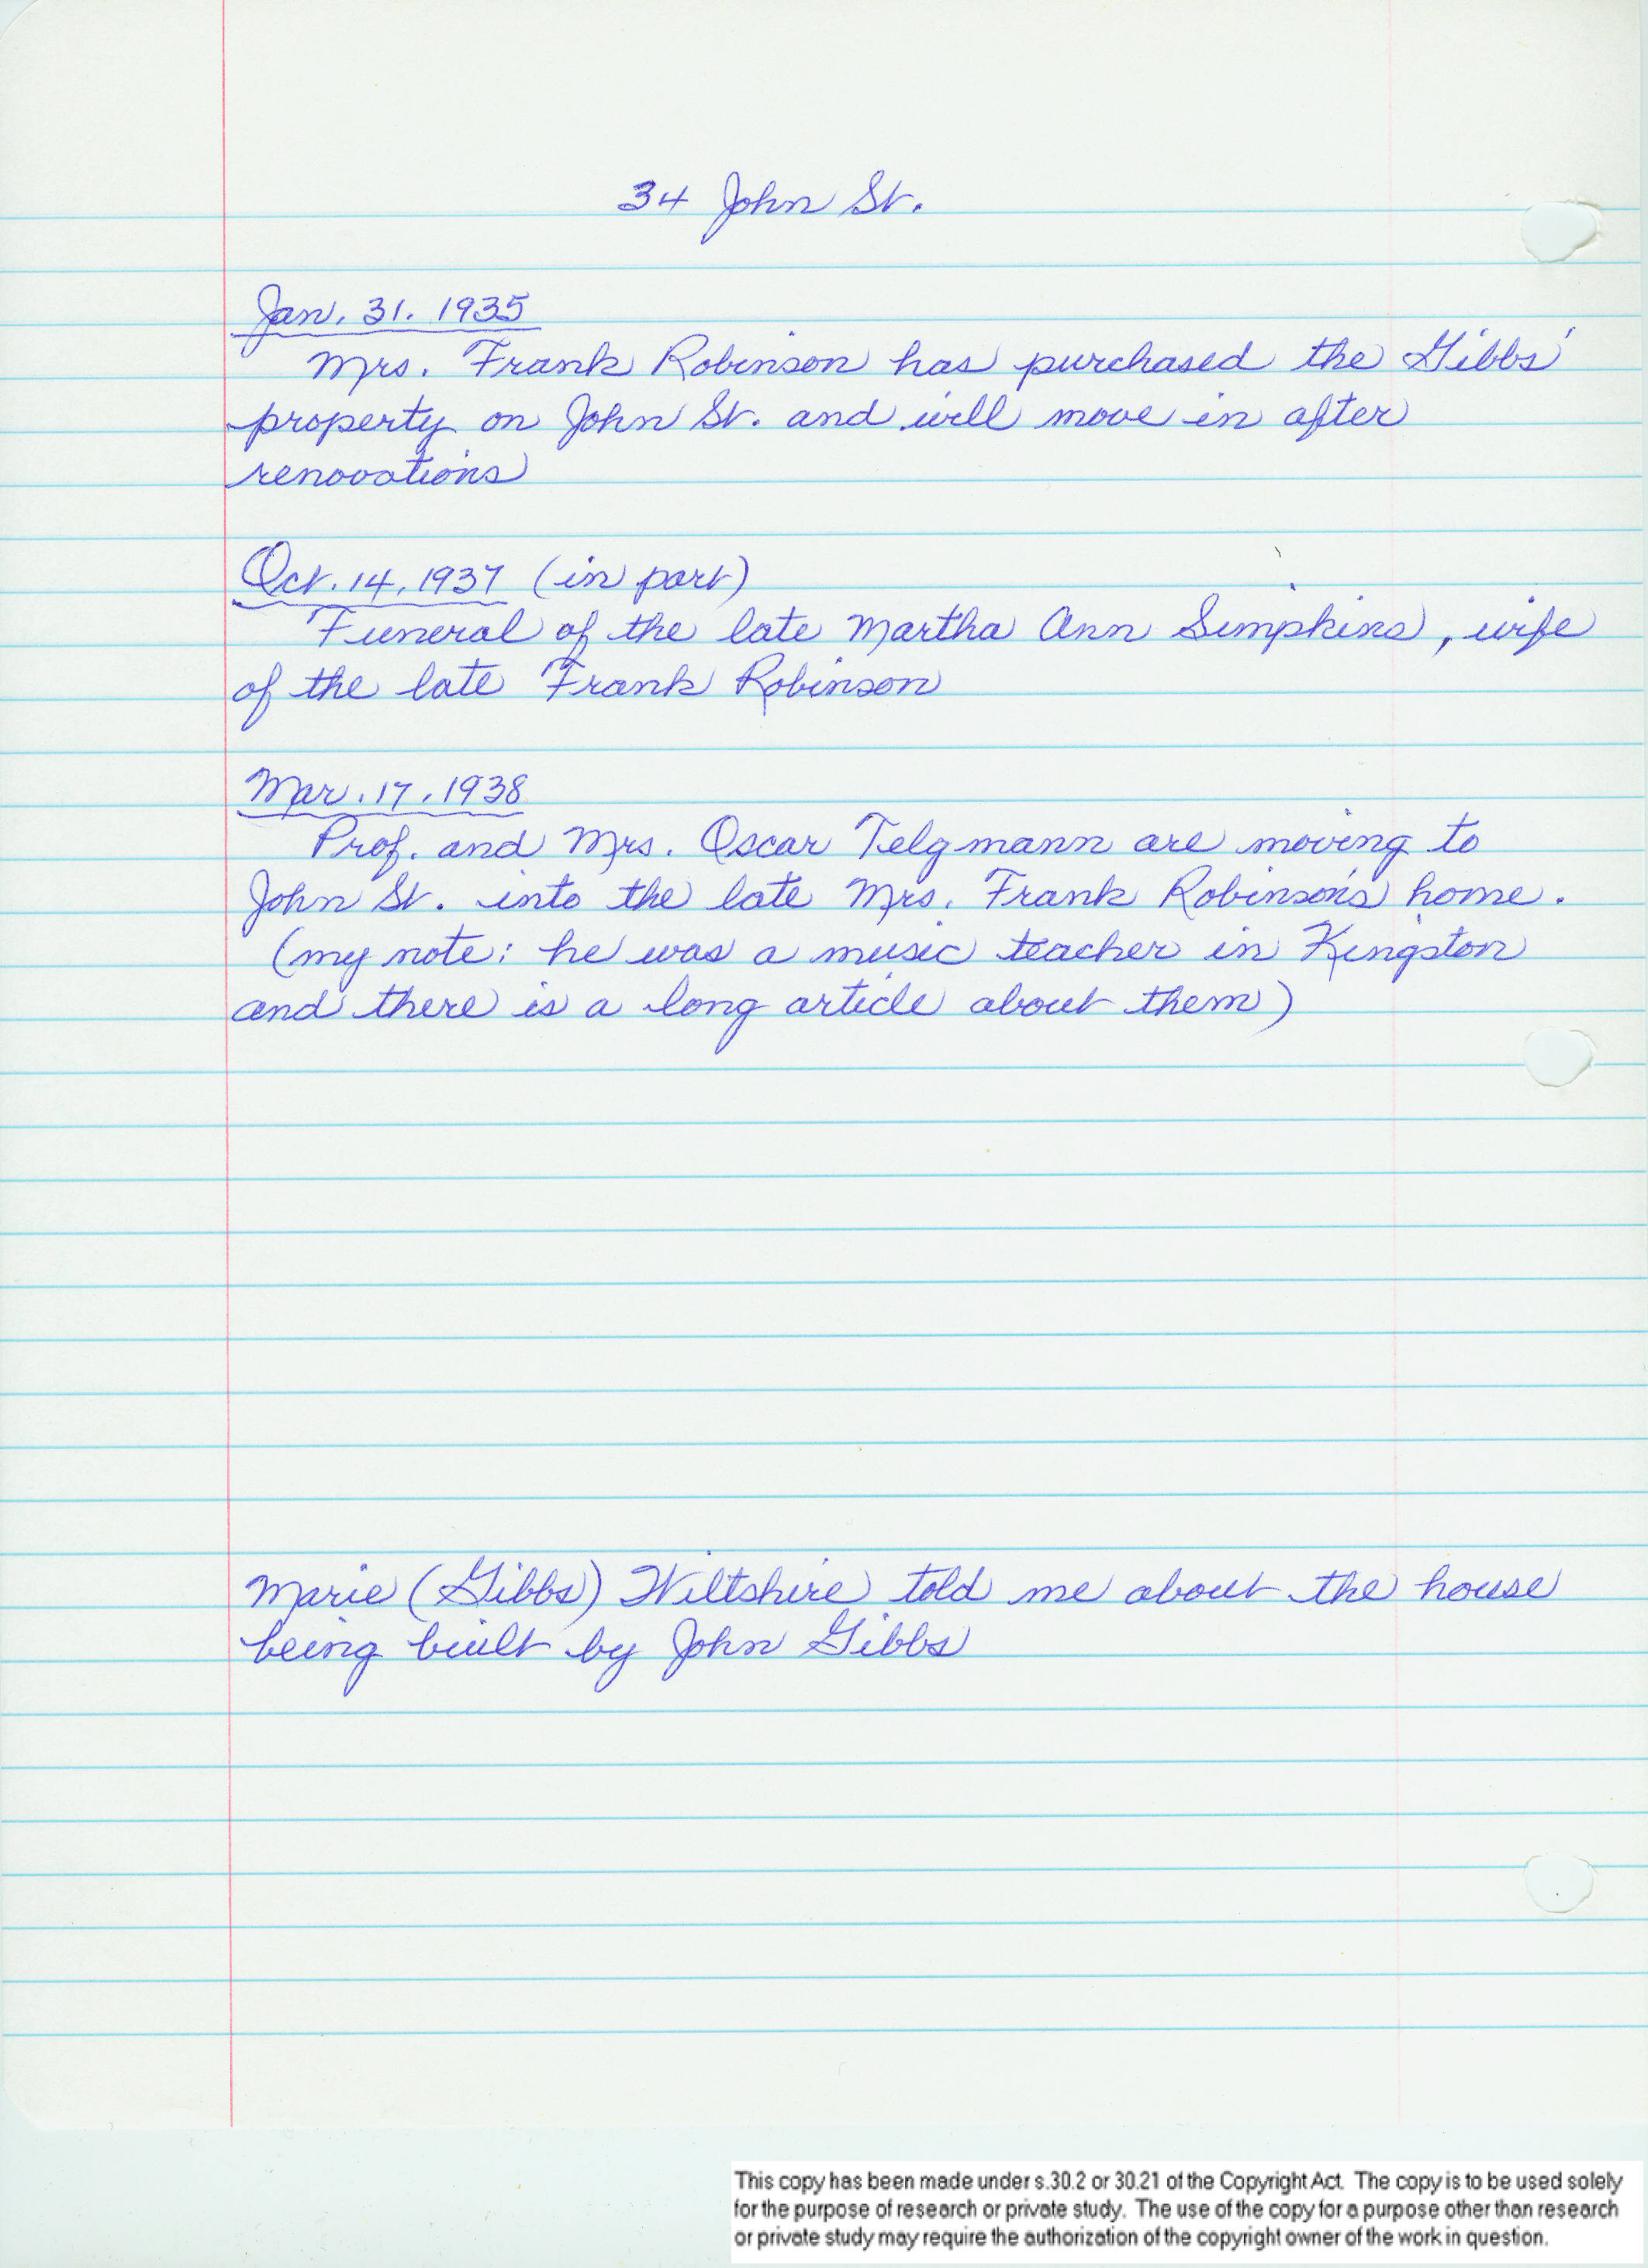 34 John St.
Jan. 31. 1935
Mrs. Frank Robinson has purchased the Gibbs'
property on John St. and will move in after
renovations
Oct. 14, 1937 (in part)
Funeral of the late Martha Ann Simpkins, wife
of the late Frank Robinson
Mar. 17. 1938
Prof. and Mrs. Oscar Telgmann are moving to
John St. into the late Mrs. Frank Robinson's home.
(my note: he was a music teacher in Kingston
and there is a long article about them)
Marie (Gibbs) Wiltshire told me about the house
being built by John Gibbs
This copy has been made under s.30.2 or 30.21 of the Copyright Act. The copy is to be used solely
for the purpose of research or private study. The use of the copy for a purpose other than research
or private study may require the authorization of the copyright owner of the work in question.